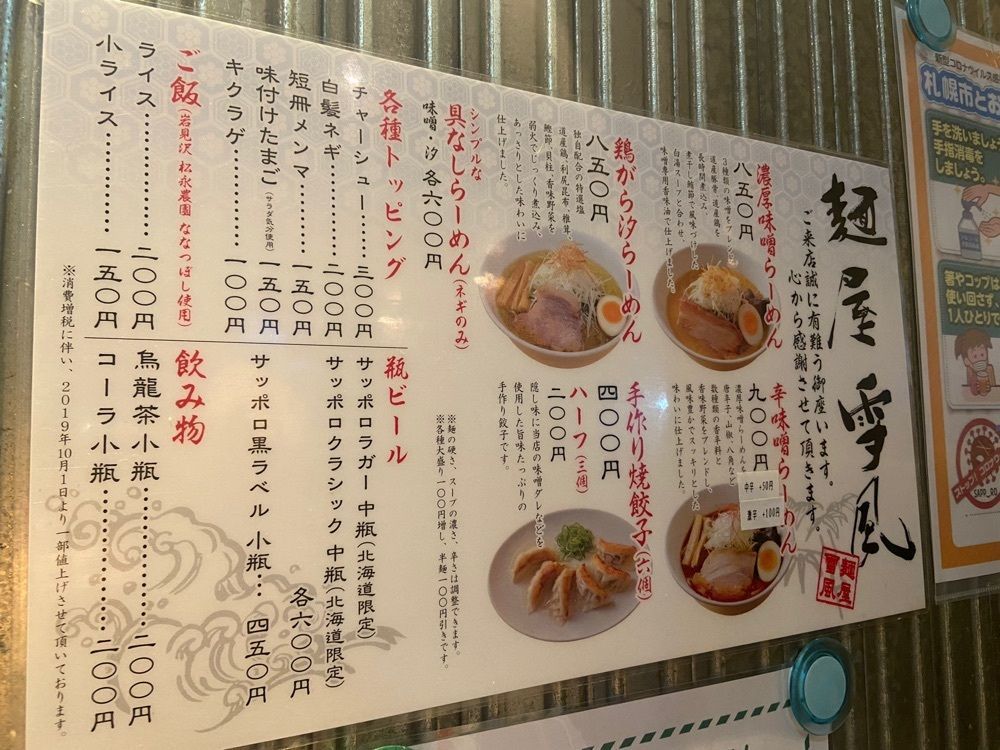 麺屋雪風
ご来店誠に有難う御座います。
心から感謝させて頂きます。
麺屋
雪風
濃厚味噌らーめん
八五〇円
3種類の味噌をブレンド。
道産豚骨 道産鶏を
長時間煮込み、
煮干し 鯖節で風味づけした
白湯スープと合わせ、
味噌専用香味油で仕上げました。
辛味噌らーめん
九〇〇円
中辛 +50円
激辛 +100円
濃厚味噌らーめんを
唐辛子、山椒、八角など
数種類の香辛料と
香味野菜をブレンドし、
風味豊かでスッキリとした
味わいに仕上げました。
鶏がら汐らーめん
八五〇円
独自配合の特選塩
道産鶏、利尻昆布、椎茸、
鰹節、貝柱、香味野菜を
弱火でじっくり煮込み、
あっさりとした味わいに
仕上げました。
手作り焼餃子(六個)
四〇〇円
ハーフ(三個)
二〇〇円
隠し味に当店の味噌ダレなどを
使用した旨味たっぷりの
手作り餃子です。
シンプルな
具なしらーめん(ネギのみ)
味噌・汐 各六〇〇円
※麺の硬さ、スープの濃さ、辛さは調整できます。
※各種大盛り一〇〇円増し、半麺一〇〇円引きです。
各種トッピング
チャーシュー……三〇〇円
白髪ネギ……二〇〇円
短冊メンマ……一五〇円
味付けたまご(サラダ気分使用)一五〇円
キクラゲ……一〇〇円
瓶ビール
サッポロラガー 中瓶(北海道限定)
サッポロクラシック 中瓶(北海道限定)
各六〇〇円
サッポロ黒ラベル 小瓶… 四五〇円
ご飯(岩見沢 松永農園 ななつぼし使用)
ライス……二〇〇円
小ライス……一五〇円
飲み物
烏龍茶小瓶……二〇〇円
コーラ小瓶……二〇〇円
※消費増税に伴い、2019年10月1日より 一部値上げさせて頂いております。
新型コロナウイルス
札幌市とお
手を洗いましょ
手指消毒を
しましょう。
箸やコップは
使い回さず、
1人ひとりで
ストップ!コロナ